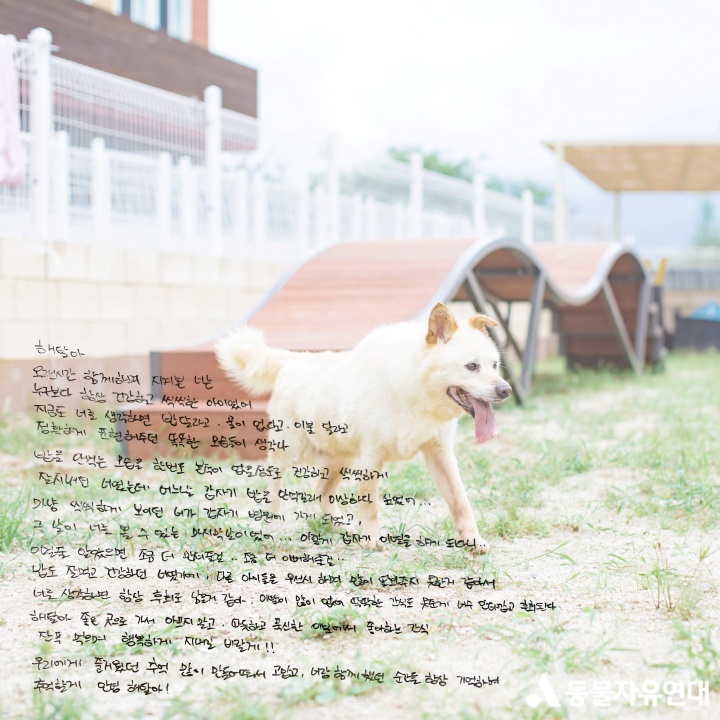 해탈아
오랜시간 함께하며 지켜본 너는
누구보다 항상 건강하고 씩씩한 아이였어
지금도 너를 생각하면 밥달라고, 물이 없다고, 이불 달라고
정확하게 표현해주던 똑똑한 모습들이 생각나
밥을 안먹는 모습을 한번도 본적이 없을정도로 건강하고 씩씩하게
잘지내던 너였는데, 어느날 갑자기 밥을 안먹길래 이상하다 싶었어...
마냥 씩씩하게 보이던 너가 갑자기 병원에 가게 되었고,
그 날이 너를 볼 수 있는 마지막날이였어... 이렇게 갑자기 이별을 하게 되다니..
이럴줄 알았으면 조금 더 챙겨줄걸.. 조금 더 이뻐해줄걸..
밥도 잘먹고 건강하던 너였기에, 다른 아이들을 우선시 하며 많이 돌봐주지 못한거 같아서
너를 생각하면 항상 후회로 남을거 같아, 이빨이 많이 없어 딱딱한 간식도 못준게 너무 안타깝고 후회된다
해탈아 좋은 곳으로 가서 아프지 말고, 따뜻하고 푹신한 이불에서 좋아하는 간식
잔뜩 먹으며 행복하게 지내길 바랄게!!
우리에게 즐거웠던 추억 많이 만들어줘서 고맙고, 너랑 함께 했던 순간들 항상 기억하며
추억할게 안녕 해탈아!
동물자유연대